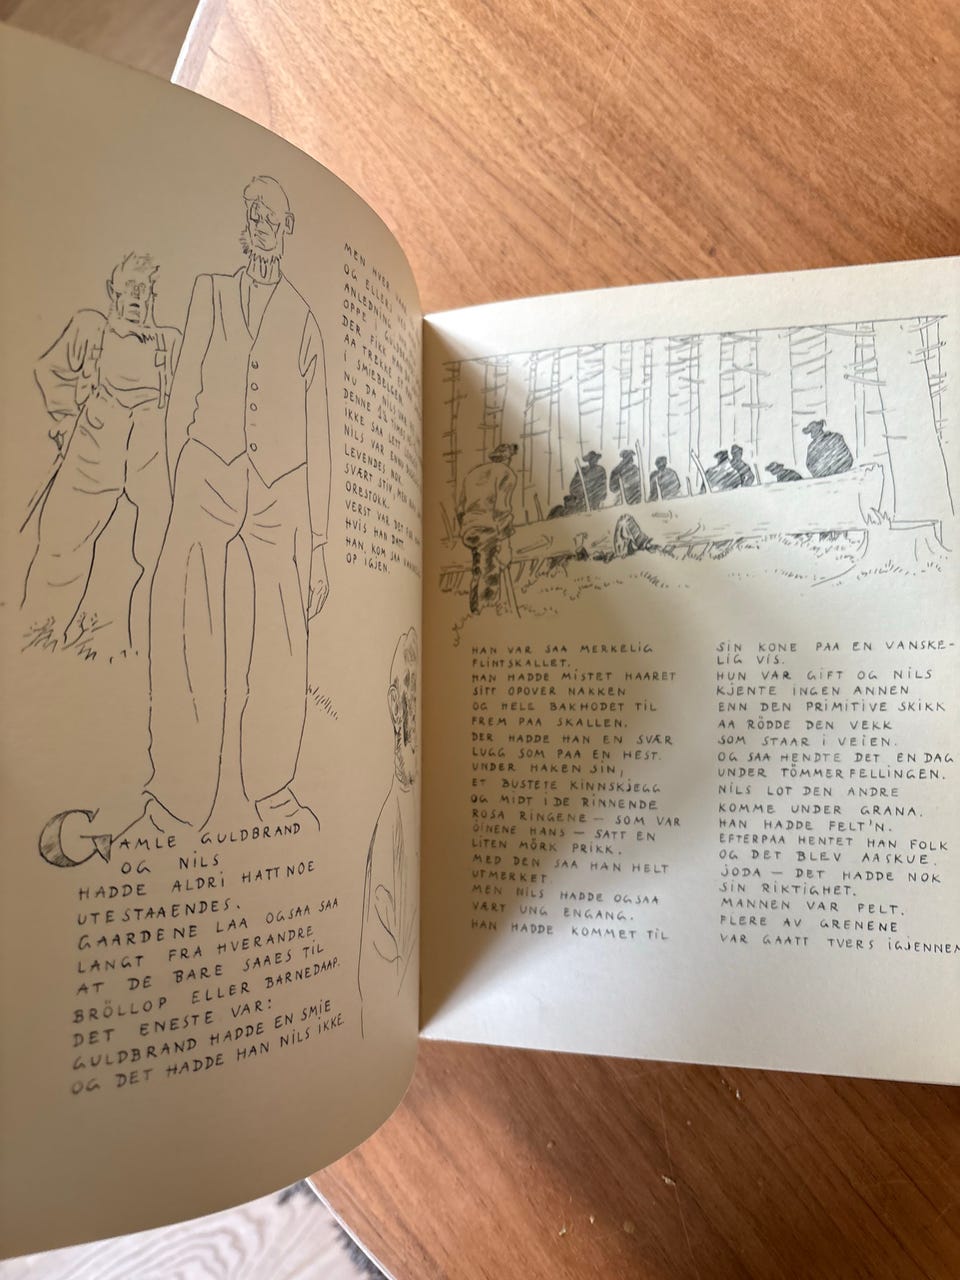 GAMLE GULDBRAND
OG NILS
HADDE ALDRI HATT NOE
UTESTAAENDES.
GAARDENE LAA OGSAA SAA
LANGT FRA HVERANDRE
AT DE BARE SAAES TIL
BRÖLLOP ELLER BARNEDAAP.
DET ENESTE VAR:
GULDBRAND HADDE EN SMIE
OG DET HADDE HAN NILS IKKE.
MEN HVER
OG ELLERS VED
ANLEDNING
OPPE I
DER FIKK HAN
AA TREKKE
I SMIEBELGEN
NU DA NILS VAR
DENNE
IKKE SAA LETT
NILS VAR ENNU
LEVENDES NOK.
SVÆRT STIV, MEN
ORESTOKK.
VERST VAR DET FOR
HVIS HAN DATT
HAN, KOM SAA
OP IGJEN.
HAN VAR SAA MERKELIG
FLINTSKALLET.
HAN HADDE MISTET HAARET
SITT OPOVER NAKKEN
OG HELE BAKHODET TIL
FREM PAA SKALLEN.
DER HADDE HAN EN SVÆR
LUGG SOM PAA EN HEST.
UNDER HAKEN SIN,
ET BUSTETE KINNSKJEGG
OG MIDT I DE RINNENDE
ROSA RINGENE — SOM VAR
ÖINENE HANS — SATT EN
LITEN MÖRK PRIKK.
MED DEN SAA HAN HELT
UTMERKET.
MEN NILS HADDE OGSAA
VÆRT UNG ENGANG.
HAN HADDE KOMMET TIL
SIN KONE PAA EN VANSKE-
LIG VIS.
HUN VAR GIFT OG NILS
KJENTE INGEN ANNEN
ENN DEN PRIMITIVE SKIKK
AA RÖDDE DEN VEKK
SOM STAAR I VEIEN.
OG SAA HENDTE DET EN DAG
UNDER TÖMMERFELLINGEN.
NILS LOT DEN ANDRE
KOMME UNDER GRANA.
HAN HADDE FELT'N.
EFTERPAA HENTET HAN FOLK
OG DET BLEV AASKUE.
JODA — DET HADDE NOK
SIN RIKTIGHET.
MANNEN VAR FELT.
FLERE AV GRENENE
VAR GAATT TVERS IGJENNEM